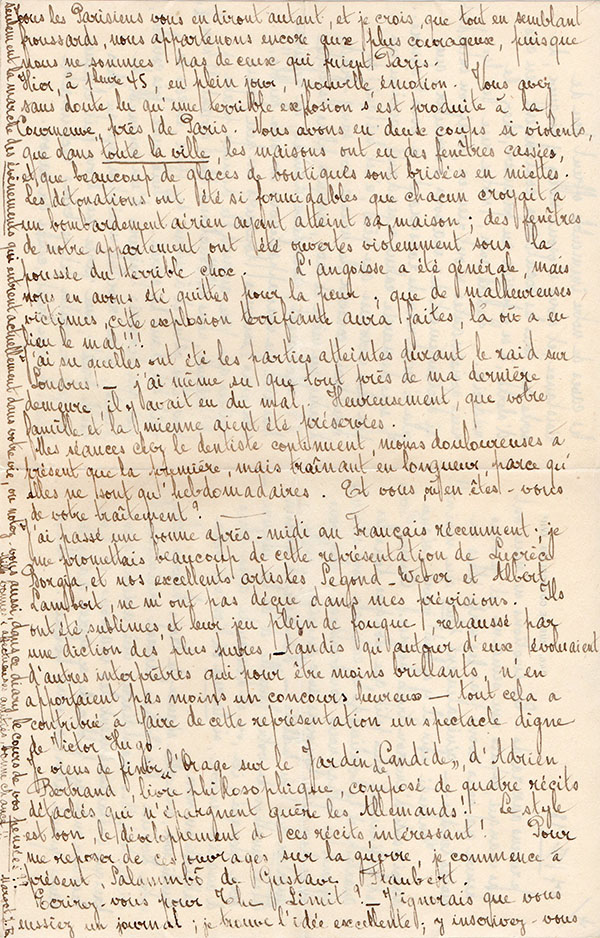 tous les Parisiens vous en diront autant, et je crois, que tout en semblant
froussards, nous appartenons encore aux plus courageux, puisque
nous ne sommes pas de ceux qui fuient Paris.
Hier, à 1 heure 45, en plein jour, nouvelle émotion. Vous avez
sans doute lu qu'une terrible explosion s'est produite à la
Courneuve, près de Paris. Nous avons eu deux coups si violents,
que dans toute la ville, les maisons ont eu des fenêtres cassées,
et que beaucoup de glaces de boutiques sont brisées en miettes.
Les détonations ont été si formidables que chacun croyait à
un bombardement aérien ayant atteint sa maison ; des fenêtres
de notre appartement ont été ouvertes violemment sous la
poussée du terrible choc. L'angoisse a été générale, mais
nous en avons été quittes pour la peur ; que de malheureuses
victimes, cette explosion terrifiante aura faites, là où a eu
lieu le mal !!!
J'ai su quelles ont été les parties atteintes durant le raid sur
Londres — j'ai même su que tout près de ma dernière
demeure, il y avait eu du mal. Heureusement, que votre
famille et la mienne aient été préservées.
Mes séances chez le dentiste continuent, moins douloureuses à
présent que la première, mais traînant en longueur, parce qu'
elles ne sont qu'hebdomadaires. Et vous où en êtes-vous
de votre traitement ?
J'ai passé une bonne après-midi au Français récemment ; je
me promettais beaucoup de cette représentation de Lucrèce
Borgia, et nos excellents artistes Segond-Weber et Albert
Lambert, ne m'ont pas déçue dans mes prévisions. Ils
ont été sublimes, et leur jeu plein de fougue, rehaussé par
une diction des plus pures, tandis qu'autour d'eux évoluaient
d'autres interprètres qui pour être moins brillants, n'en
apportaient pas moins un concours heureux — tout cela a
contribué à faire de cette représentation un spectacle digne
de Victor Hugo.
Je viens de finir "l'Orage sur le Jardin de Candide", d'Adrien
Bertrand, livre philosophique, composé de quatre récits
détachés qui n'épargnent guère les Allemands ! Le style
est bon, le développement de ces récits, intéressant ! Pour
me reposer de ces ouvrages sur la guerre, je commence à
présent, Salammbô de Gustave Flaubert.
Ecrivez-vous pour The Limit ? — J'ignorais que vous
eussiez un journal ; je trouve l'idée excellente ; y inscrivez-vous
seulement la marche des événements qui entrent actuellement dans votre vie, ou notez-vous aussi, dans ce diary, le cours de vos pensées !?
bonne chance !! Margel